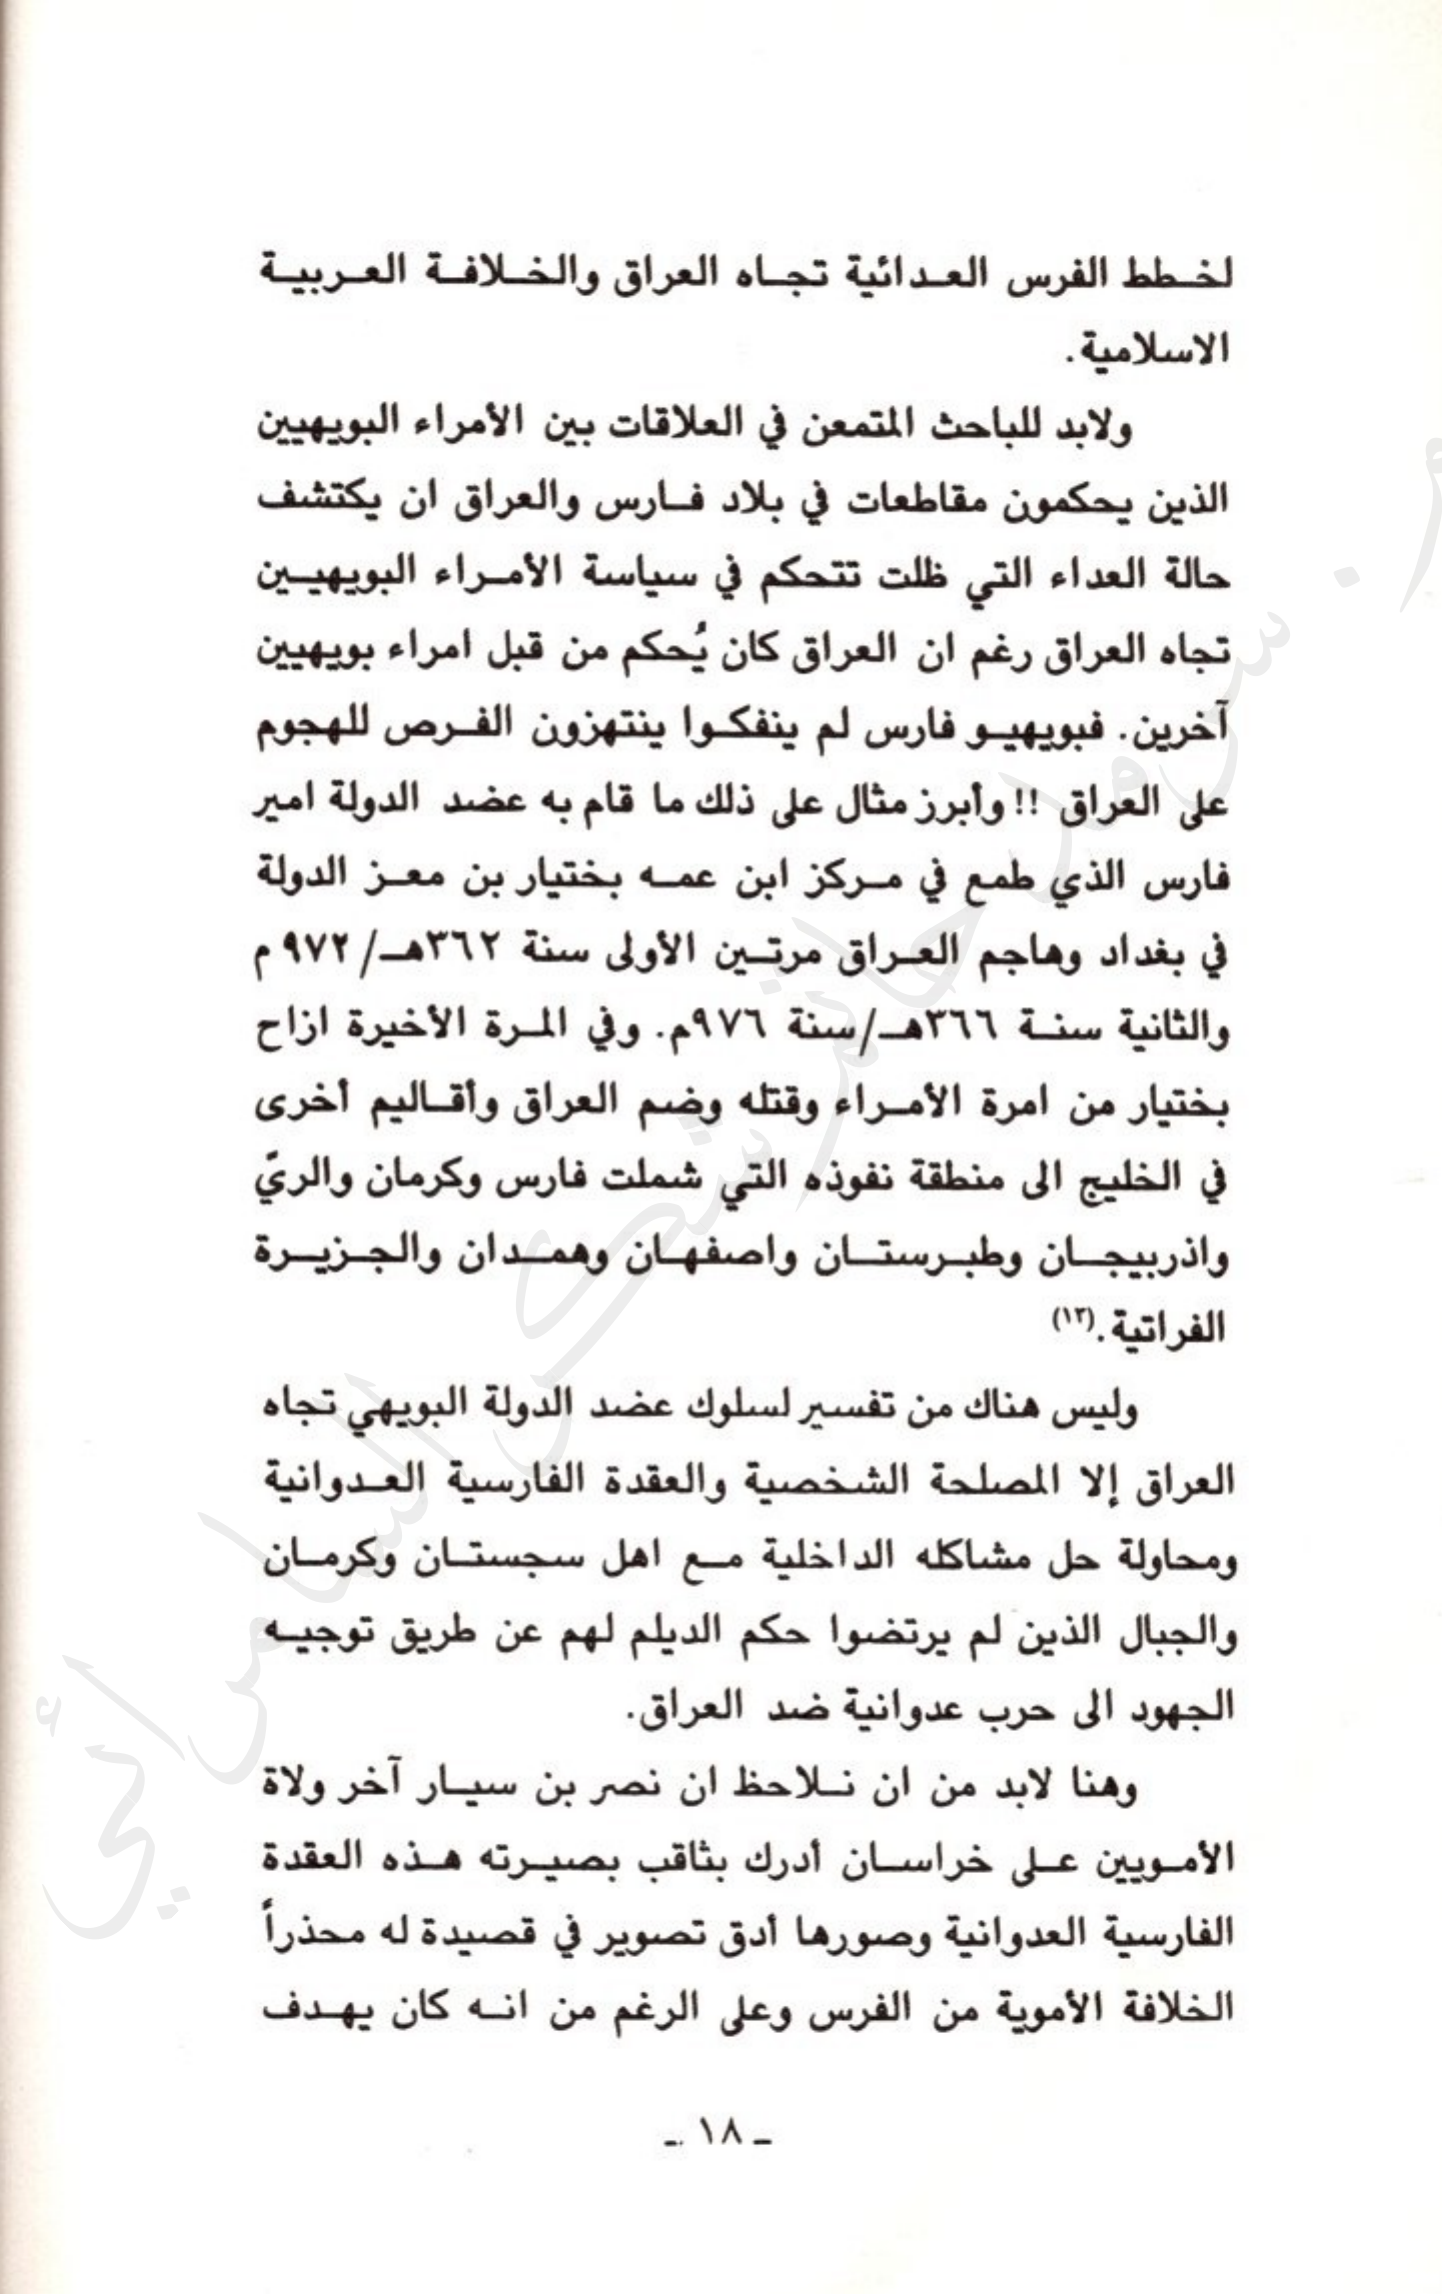 لخطط الفرس العدائية تجاه العراق والخلافة العربية
الاسلامية.
ولابد للباحث المتمعن في العلاقات بين الأمراء البويهيين
الذين يحكمون مقاطعات في بلاد فارس والعراق ان يكتشف
حالة العداء التي ظلت تتحكم في سياسة الأمراء البويهيين
تجاه العراق رغم ان العراق كان يُحكم من قبل امراء بويهيين
آخرين. فبويهيو فارس لم ينفكوا ينتهزون الفرص للهجوم
على العراق !! وأبرز مثال على ذلك ما قام به عضد الدولة امير
فارس الذي طمع في مركز ابن عمه بختيار بن معز الدولة
في بغداد وهاجم العراق مرتين الأولى سنة ٣٦٢هـ/٩٧٢م
والثانية سنة ٣٦٦هـ/سنة ٩٧٦م. وفي المرة الأخيرة ازاح
بختيار من امرة الأمراء وقتله وضم العراق وأقاليم أخرى
في الخليج الى منطقة نفوذه التي شملت فارس وكرمان والريّ
واذربيجان وطبرستان واصفهان وهمدان والجزيرة
الفراتية.(١٣)
وليس هناك من تفسير لسلوك عضد الدولة البويهي تجاه
العراق إلا المصلحة الشخصية والعقدة الفارسية العدوانية
ومحاولة حل مشاكله الداخلية مع اهل سجستان وكرمان
والجبال الذين لم يرتضوا حكم الديلم لهم عن طريق توجيه
الجهود الى حرب عدوانية ضد العراق.
وهنا لابد من ان نلاحظ ان نصر بن سيار آخر ولاة
الأمويين على خراسان أدرك بثاقب بصيرته هذه العقدة
الفارسية العدوانية وصورها أدق تصوير في قصيدة له محذراً
الخلافة الأموية من الفرس وعلى الرغم من انه كان يهدف
ـ ١٨ ـ